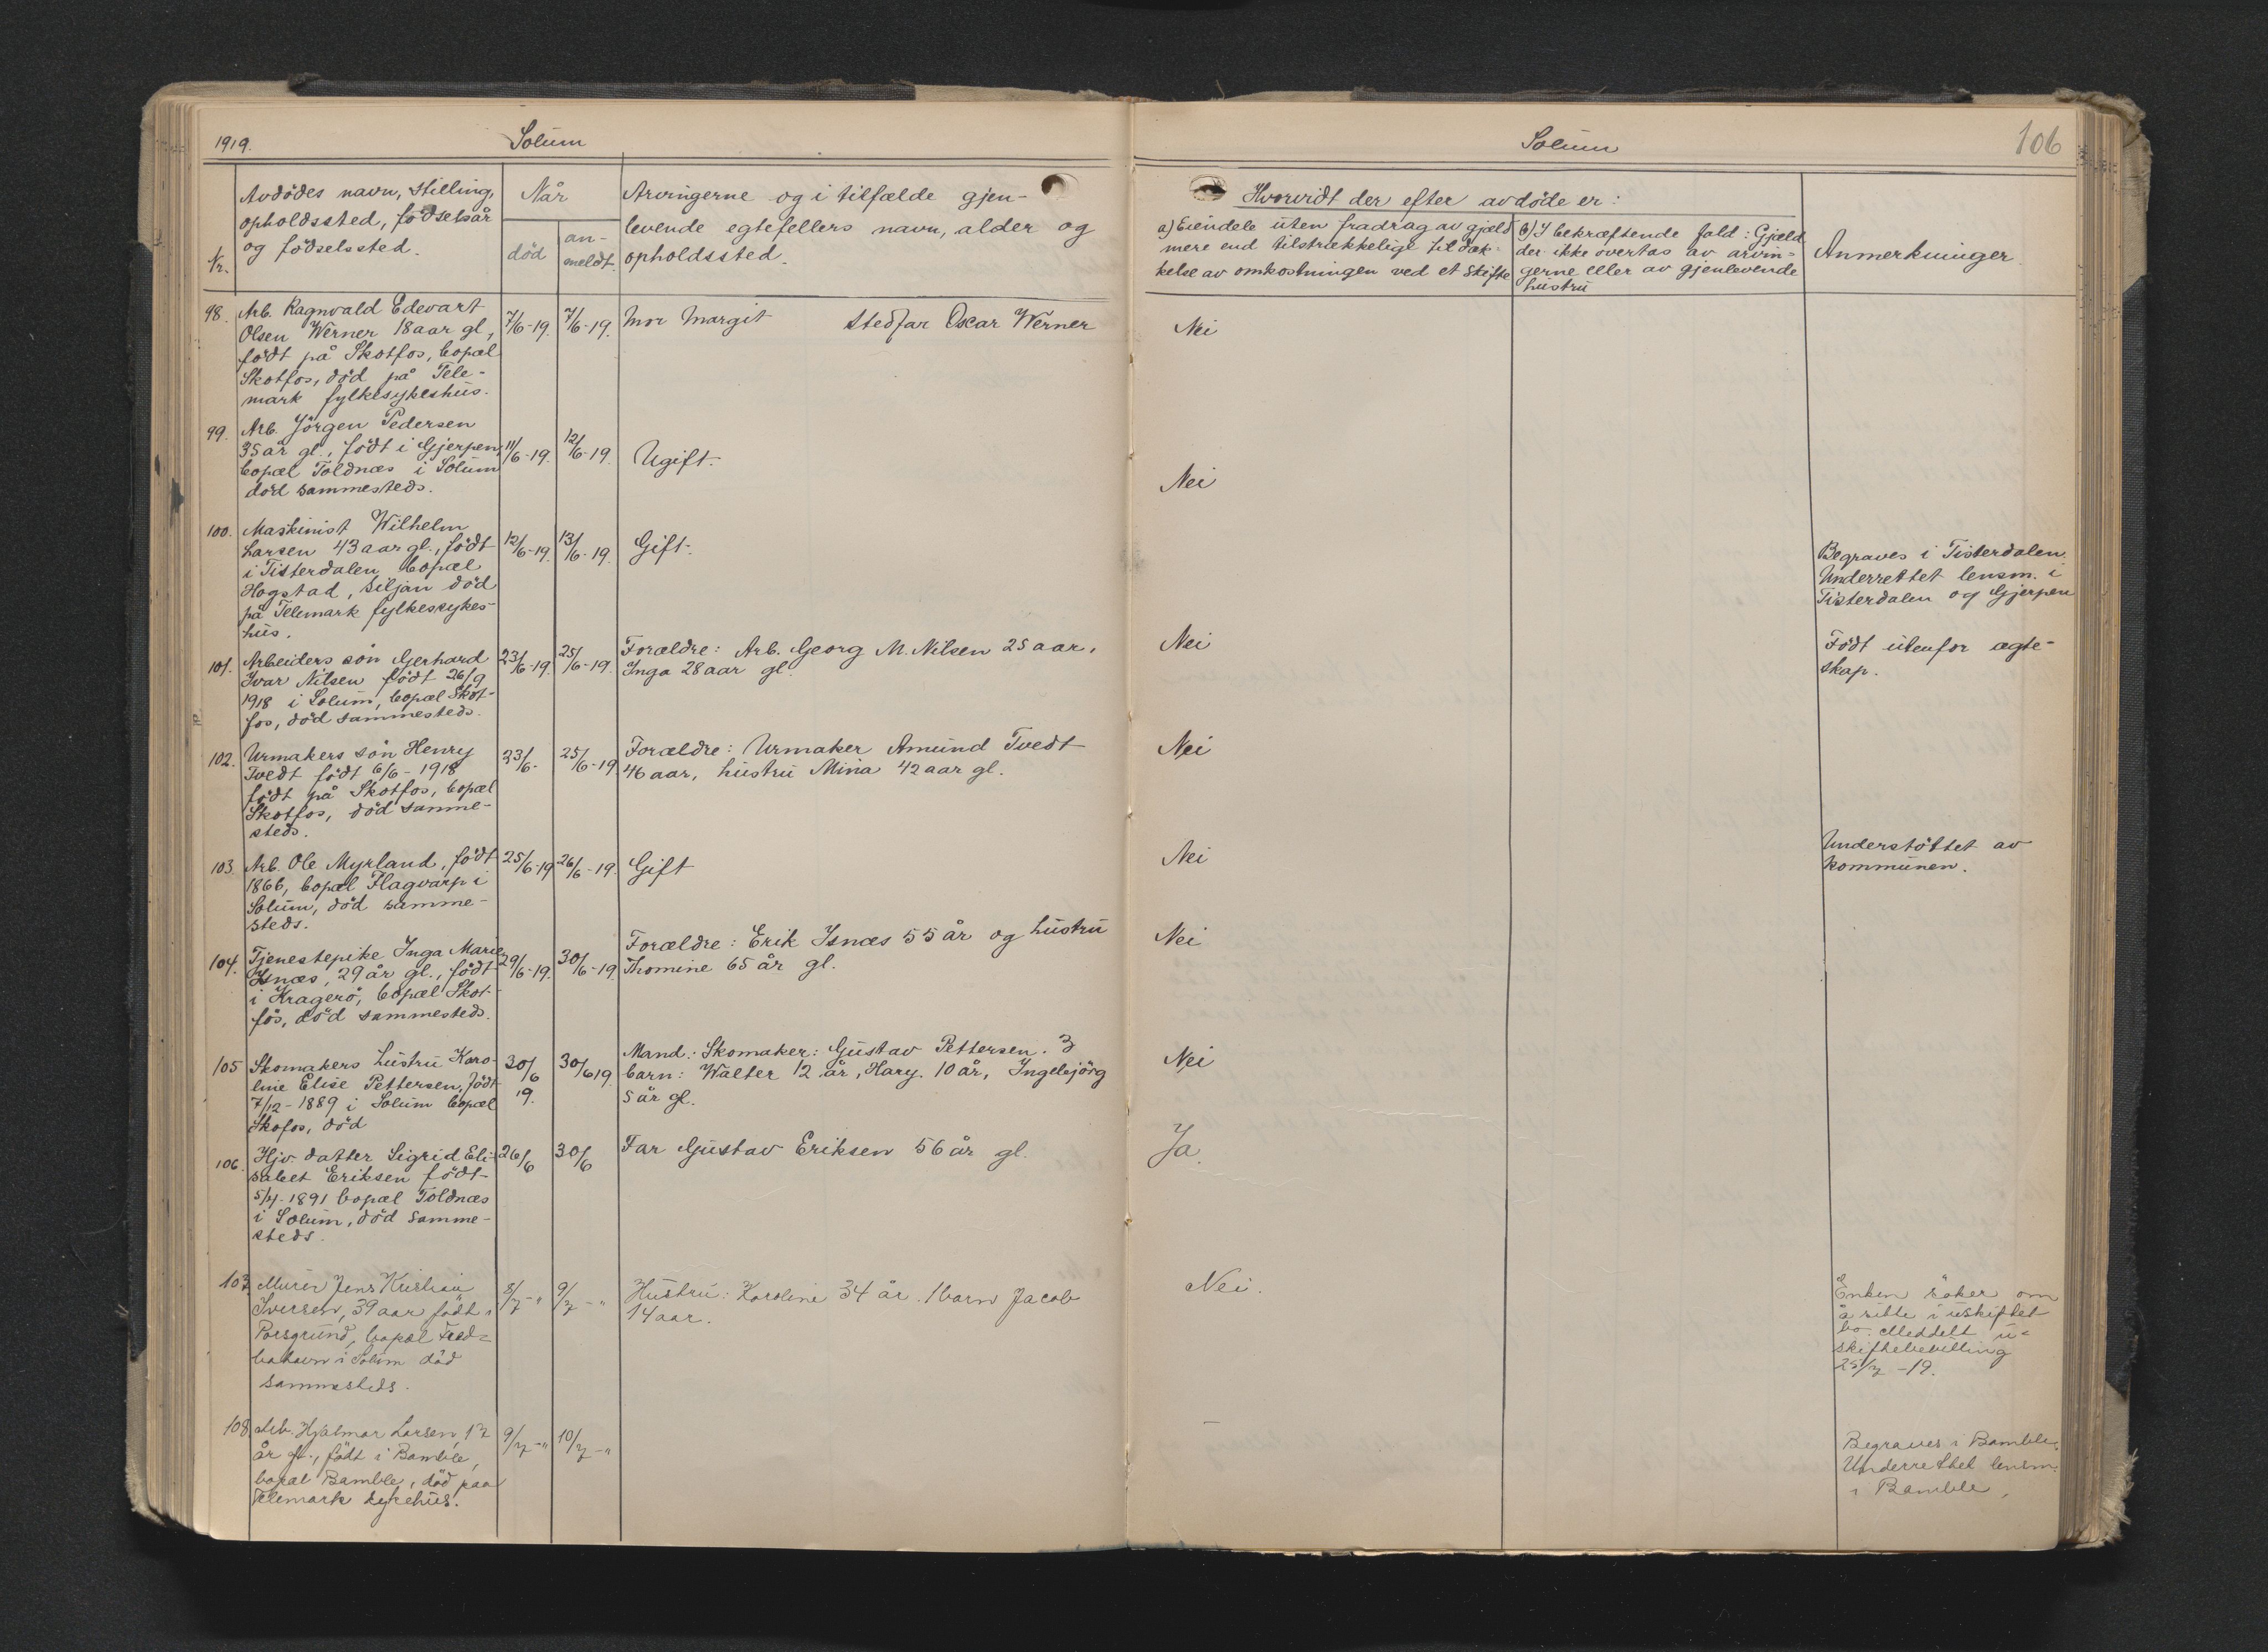 1919. Solum
Nr.
Avdödes navn, stilling,
opholdssted, födselsår
og födselssted.
Når
död
an-
meldt.
Arvingerne og i tilfælde gjen-
levende egtefellers navn, alder og
opholdssted.
98. Arb. Ragnvald Edevart
Olsen Werner 18 aar gl.,
födt på Skotfos, bopæl
Skotfos, död på Tele-
mark fylkesykehus.
7/6-19. 7/6-19. Mor Margit Stedfar Oscar Werner
99. Arb. Jörgen Pedersen
35 år gl., födt i Gjerpen,
bopæl Toldnæs i Solum
död sammesteds.
11/6-19. 12/6-19. Ugift.
100. Maskinist Wilhelm
Larsen 43 aar gl., födt
i Tisterdalen bopæl
Hogstad, Siljan död
på Telemark fylkessykes-
hus.
12/6-19. 13/6-19. Gift.
101. Arbeiders sön Gerhard
Ivar Nilsen födt 26/9
1918 i Solum, bopæl Skot-
fos, död sammesteds.
23/6-19. 25/6-19. Forældre: Arb. Georg M. Nilsen 25 aar,
Inga 28 aar gl.
102. Urmakers sön Henry
Tvedt födt 6/6-1918
födt på Skotfos, bopæl
Skotfos, död samme-
steds.
23/6- 25/6-19 Forældre: Urmaker Amund Tvedt
46 aar, hustru Mina 42 aar gl.
103. Arb. Ole Myrland, födt
1866, bopæl Flagvarp i
Solum, död samme-
steds.
25/6-19 26/6-19. Gift
104. Tjenestepike Inga Marie
Isnæs, 29 år gl., födt
i Kragerö, bopæl Skot-
fos, död sammesteds.
29/6-19. 30/6-19. Forældre: Erik Isnæs 55 år og hustru
Thomine 65 år gl.
105 Skomakers hustru Karo-
line Elise Pettersen, födt
7/12-1889 i Solum bopæl
Skofos, död
30/6
19.
30/6 19. Mand: Skomaker: Gustav Pettersen. 3
barn: Walter 12 år, Hary. 10 år, Ingebjörg
5 år gl.
106. Hjv. datter Sigrid Eli-
sabet Eriksen födt
5/4-1891 bopæl Toldnæs
i Solum, död samme-
steds.
26/6 30/6 Far Gustav Eriksen 56 år gl.
107 Murer Jens Kristian
Iversen, 39 aar födt i
Porsgrund, bopæl
i Solum död
sammesteds.
8/7-" 9/7-" Hustru: Karoline 34 år. 1 barn Jacob
14 aar.
108 Arb. Hjalmar Larsen, 17
år gl., födt i Bamble,
bopæl Bamble, död paa
Telemark sykehus.
9/7-" 10/7-"
Solum 106
Hvorvidt der efter avdöde er:
a) Eiendele uten fradrag av gjæld
mere end tilstrekkelige til dæk-
kelse av omkostningen ved et skifte
b) I bekræftende fald: Gjæld
der ikke overtas av arvin-
gerne eller av gjenlevende
hustru
Anmerkninger.
Nei
Nei
Begraves i Tisterdalen.
Underrettet lensm. i
Tisterdalen og Gjerpen
Nei
Födt utenfor ægte-
skap.
Nei
Nei
Understöttet av
kommunen.
Nei
Nei
Ja.
Nei.
Enken söker om
å sitte i uskiftet
bo. Meddelt u-
skiftebevilling
25/7-19.
–
Begraves i Bamble.
Underrettet lensm.
i Bamble.